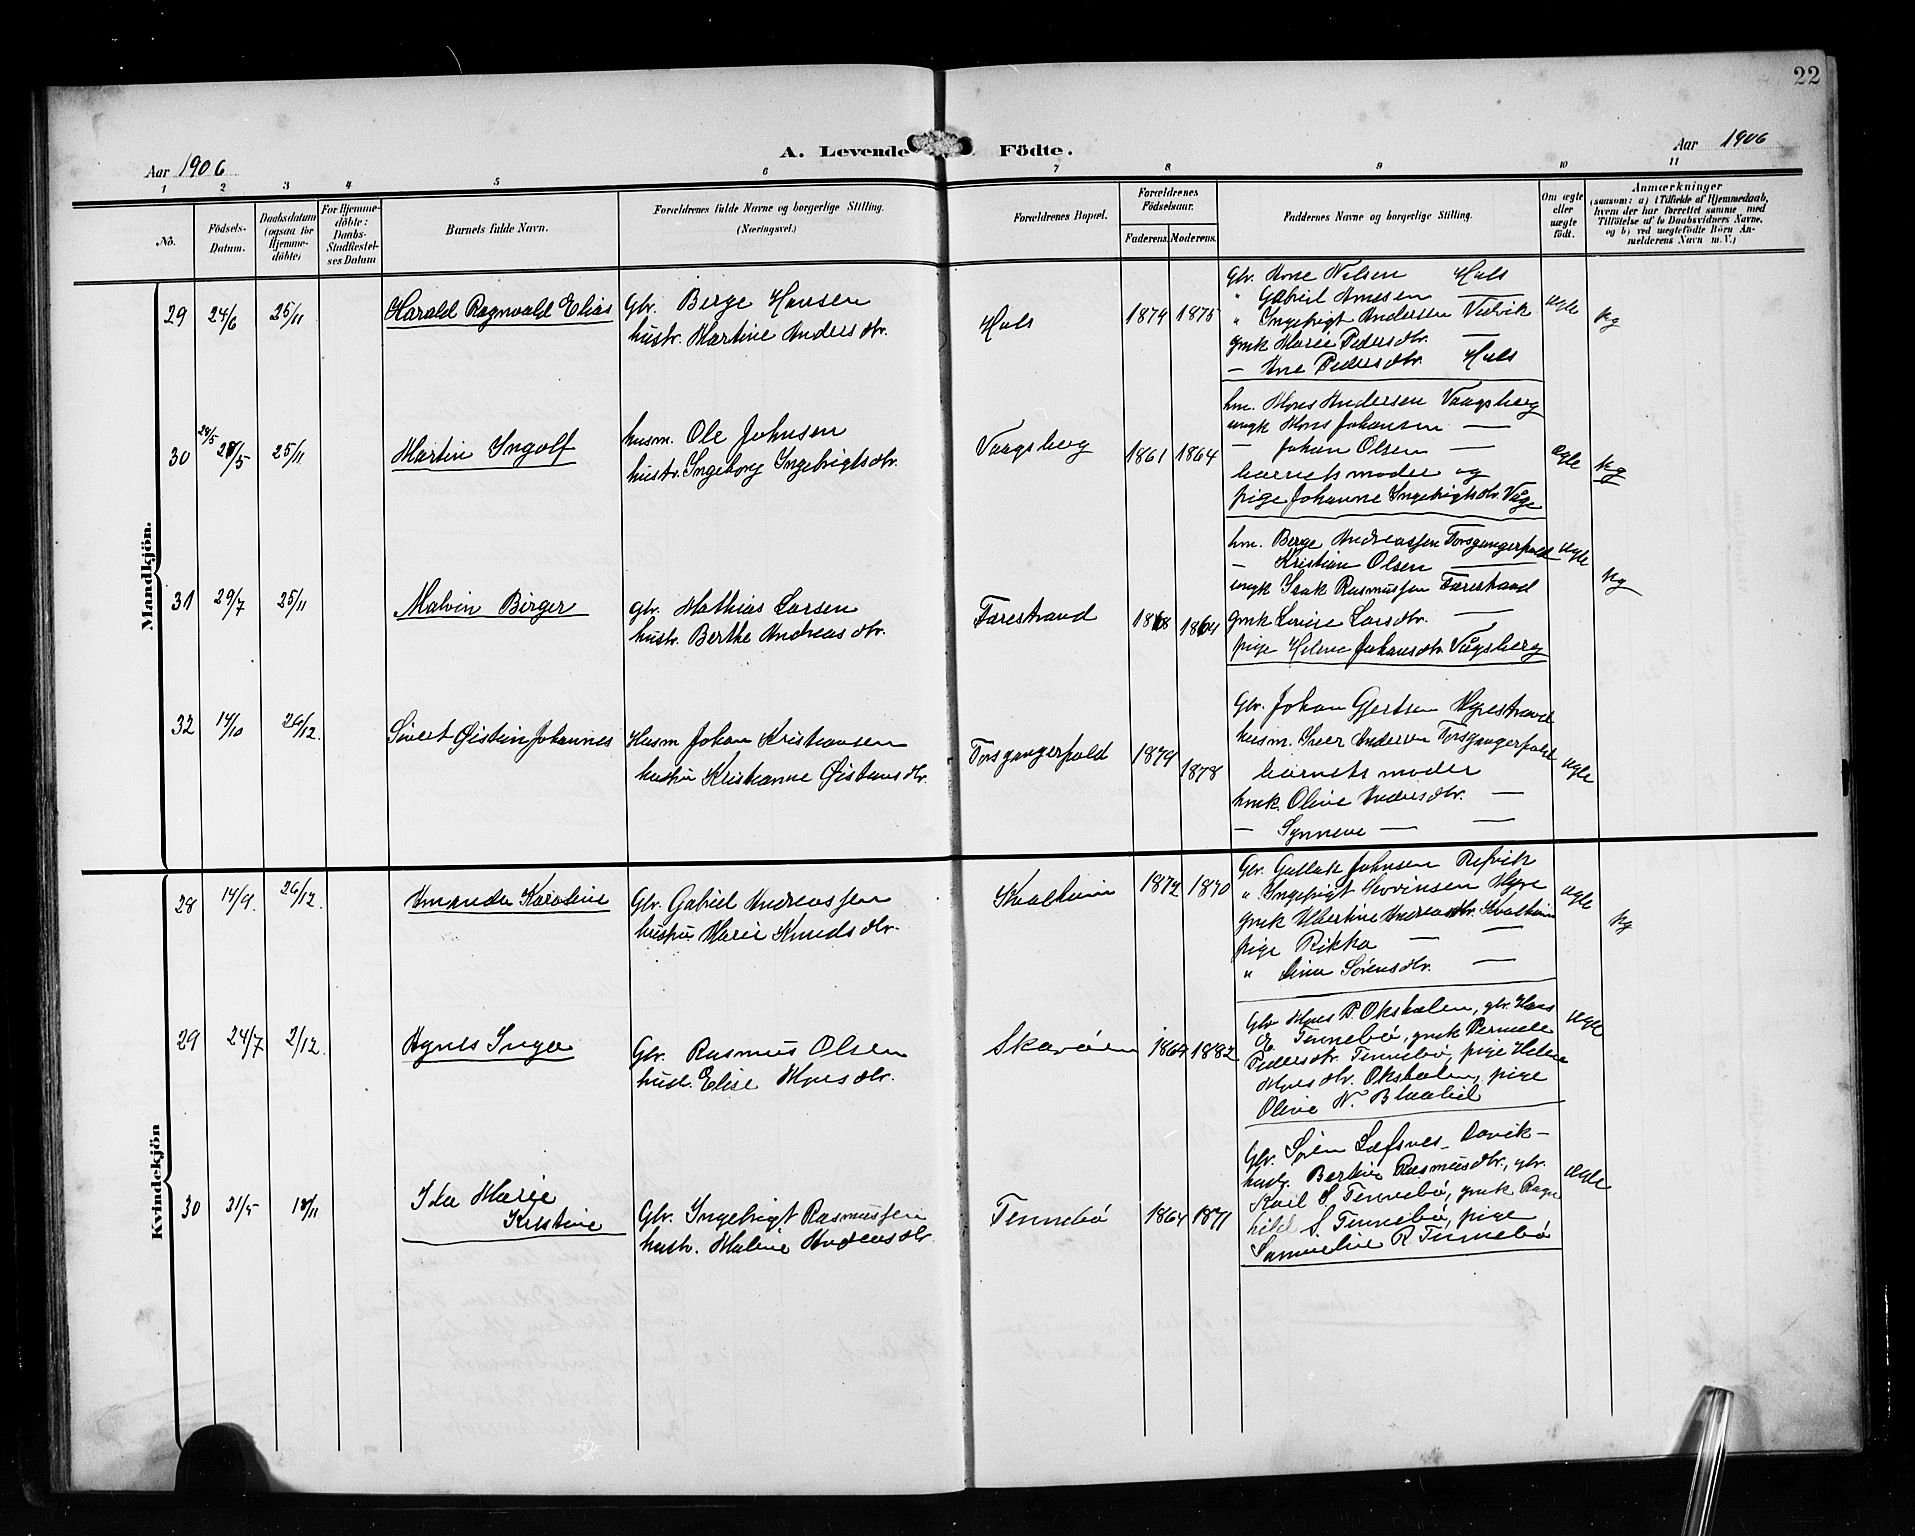 22
A. Levende Födte.
Aar 1906
Aar 1906
1 2 3 4 5 6 7 8 9 10 11
No.
Födsels-Datum.
Daabsdatum (ogsaa for Hjemme-döbte)
For Hjemme-döbte: Daabs-Stadfæstel-ses Datum
Barnets fulde Navn.
Forældrenes fulde Navne og borgerlige Stilling.
(Næringsvei.)
Forældrenes Bopæl.
Forældrenes Födselsaar.
Faderens. Moderens.
Faddernes Navne og borgerlige Stilling.
Om ægte eller uægte födt.
Anmærkninger
(saasom: a) i Tilfælde af Hjemmedaab,
hvem der har forrettet samme med
Tilföielse af to Daabsvidners Navne,
og b) ved uægtefödte Börn An-
melderens Navn m. V.)
Mandkjön.
29 24/6 25/11 Harald Ragnvald Elias
Gbr. Berge Hansen
hustr. Martine Andersdtr.
Hals 1879 1875
Gbr. Arne Nilsen Hals
" Gabriel Arnesen —
" Ingebrigt Andersen Vedvik
gmk Marie Pedersdtr. —
— Ane Pedersdtr. Hals
ægte
30 28/5 25/11 Martin Ingolf
husm. Ole Johnsen
hustr. Ingeborg Ingebrigtsdtr.
Vaagsberg 1861 1864
hm. Mons Andersen Vaagsberg
ungk Mons Johansen —
— Johan Olsen —
barnets moder og
pige Johanne Ingebrigtsdtr. Våge
ægte
31 29/7 25/11 Malvin Birger
gbr. Mathias Larsen
hustr. Berthe Andreasdtr.
Færestrand 1868 1864
hm. Berge Andreassen Torsgangerpold
— Kristian Olsen —
ungk Isak Rasmussen Færestrand
gmk Lovise Larsdtr. —
pige Helene Johansdtr. Vågsberg
ægte
32 14/10 26/12. Sivert Øistein Johannes
Husm Johan Kristiansen
hustru Kristianne Øistensdtr.
Torsgangerpold 1879 1878
Gbr. Johan Gjertsen
husm. Iver Andersen Torsgangerpold
barnets moder
hmk. Oline Andersdtr. —
— Synneve — —
ægte
Kvindekjön
28 14/9. 26/12. Amanda Karoline
Gbr. Gabriel Andreassen
hustru Marie Knudsdtr.
Kvalheim 1872 1870
Gbr. Gullak Johnsen Refvik
" Ingebrigt
gmk Albertine Andreasdtr. Kvalheim
pige Rikka — —
" Lina Sørensdtr. —
ægte
29 24/7 2/12 Agnes Inga
Gbr. Rasmus Olsen
hust. Elise
Skavöen 1864 1882
Gbr P. Oksbalen, gbr. Hans
E. Tennebø, gmk Pernele
Pedersdtr. Tennebø, pige Helene
dtr. Oksbalen, pige
Olive N. Blaabil
ægte
30 31/5 18/11 Ida Marie
Kristine
Gbr. Ingebrigt Rasmussen
hustr. Malene Andreasdtr.
Tennebø 1864 1871
Gbr. Søren Lefsnes Davik —
hustr. Bertine Rasmusdtr., gbr.
Karl S. Tennebø, gmk Ragn
hild S. Tennebø, pige
Samueline R. Tennebø
ægte